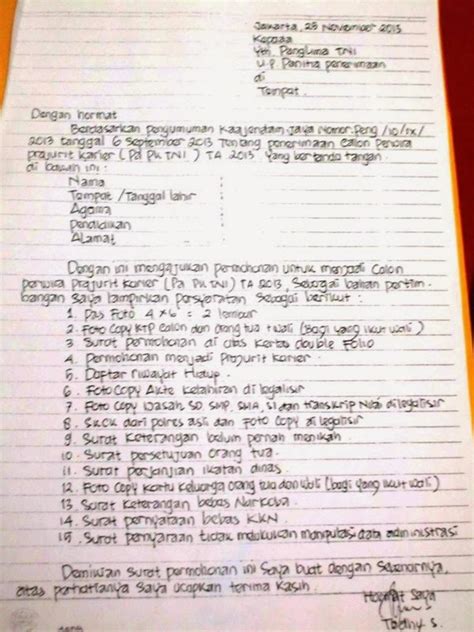 Jakarta, 25 November 2013
Kepada
Yth. Panglima TNI
U.P. Panitia penerimaan
di
Tempat.
Dengan hormat
Berdasarkan pengumuman Kaajendam Jaya Nomor Peng /10/IX/
2013 tanggal 6 September 2013 Tentang penerimaan Calon Perwira
prajurit karier (Pa PK TNI) TA 2013 yang bertanda tangan
di bawah ini :
Nama :
Tempat /Tanggal lahir :
Agama :
Pendidikan :
Alamat :
Dengan ini mengajukan permohonan untuk menjadi Calon
perwira prajurit karier (Pa PK TNI) TA 2013, Sebagai bahan pertim-
bangan saya lampirkan persyaratan sebagai berikut :
1. Pas Foto 4 x 6 = 2 lembar
2. Foto Copy KTP calon dan orang tua + wali (Bagi yang ikut wali)
3. Surat permohonan di atas kertas double Folio
4. Permohonan menjadi Prajurit karier.
5. Daftar riwayat Hidup.
6. Foto Copy Akte kelahiran di legalisir
7. Foto Copy Ijasah SD SMP, SMA, S1 dan transkrip Nilai di legalisir
8. SKCK dari polres asli dan Foto Copy di legalisir
9. Surat keterangan belum pernah menikah.
10. Surat persetujuan orang tua.
11. Surat perjanjian ikatan dinas
12. Foto Copy kartu keluarga orang tua dan wali (bagi yang ikut wali)
13. Surat keterangan bebas Narkoba.
14. Surat pernyataan bebas KKN
15. Surat pernyaraan tidak melakukan manipulasi data administrasi
Demikian surat permohonan ini saya buat dengan sebenarnya,
atas perhatianya saya ucapkan terima kasih.
Hormat Saya
S.